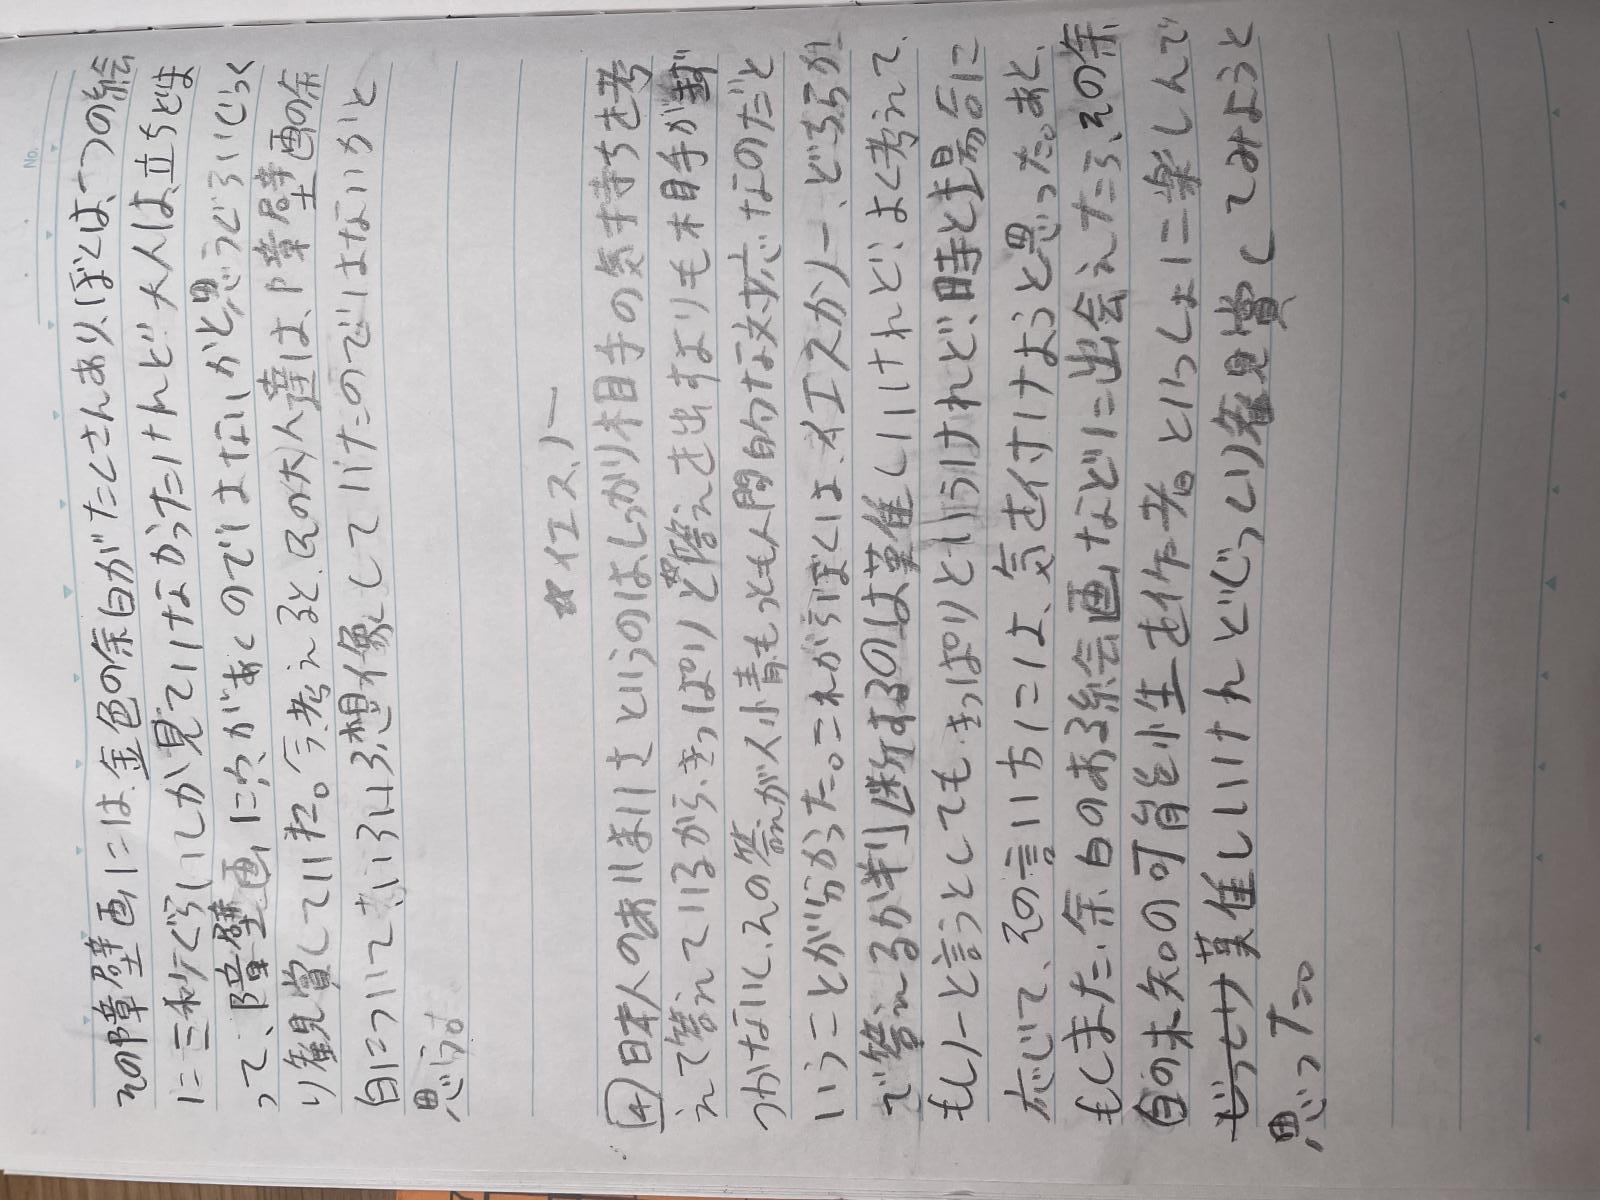 No.
その障壁画には、金色の余白がたくさんあり、ぼくは、一つの絵
に三秒ぐらいしか見ていなかったけれど、大人は、立ちどま
って、障壁画に穴があくのではないかと思うぐらいじっく
り観賞していた。今考えると、の大人達は、障壁画の余
白についてきいろいろ想像していたのではないかと
思う。
☆イエス、ノー
4 日本人のあいまいさというのはしっかり相手の気持ちを考
えて答えているから、きっぱりと答えを出すよりも相手がきず
つかないし、その答えが人情もっとも人間的な対応なのだと
いうことが分かった。これからぼくは、イエスかノー、どちらか
で答えるか判断するのは難しいけれど、よく考えて、
もしノーと言うとしても、きっぱりというけれど、時と場合に
応じて、その言い方には、気を付けようと思った。あと、
もしまた、余白のある絵画などに出会えたら、その余
白の未知の可能性を作者といっしょに楽しんで
じっけ難しいけれどじっくり観賞してみようと
思った。